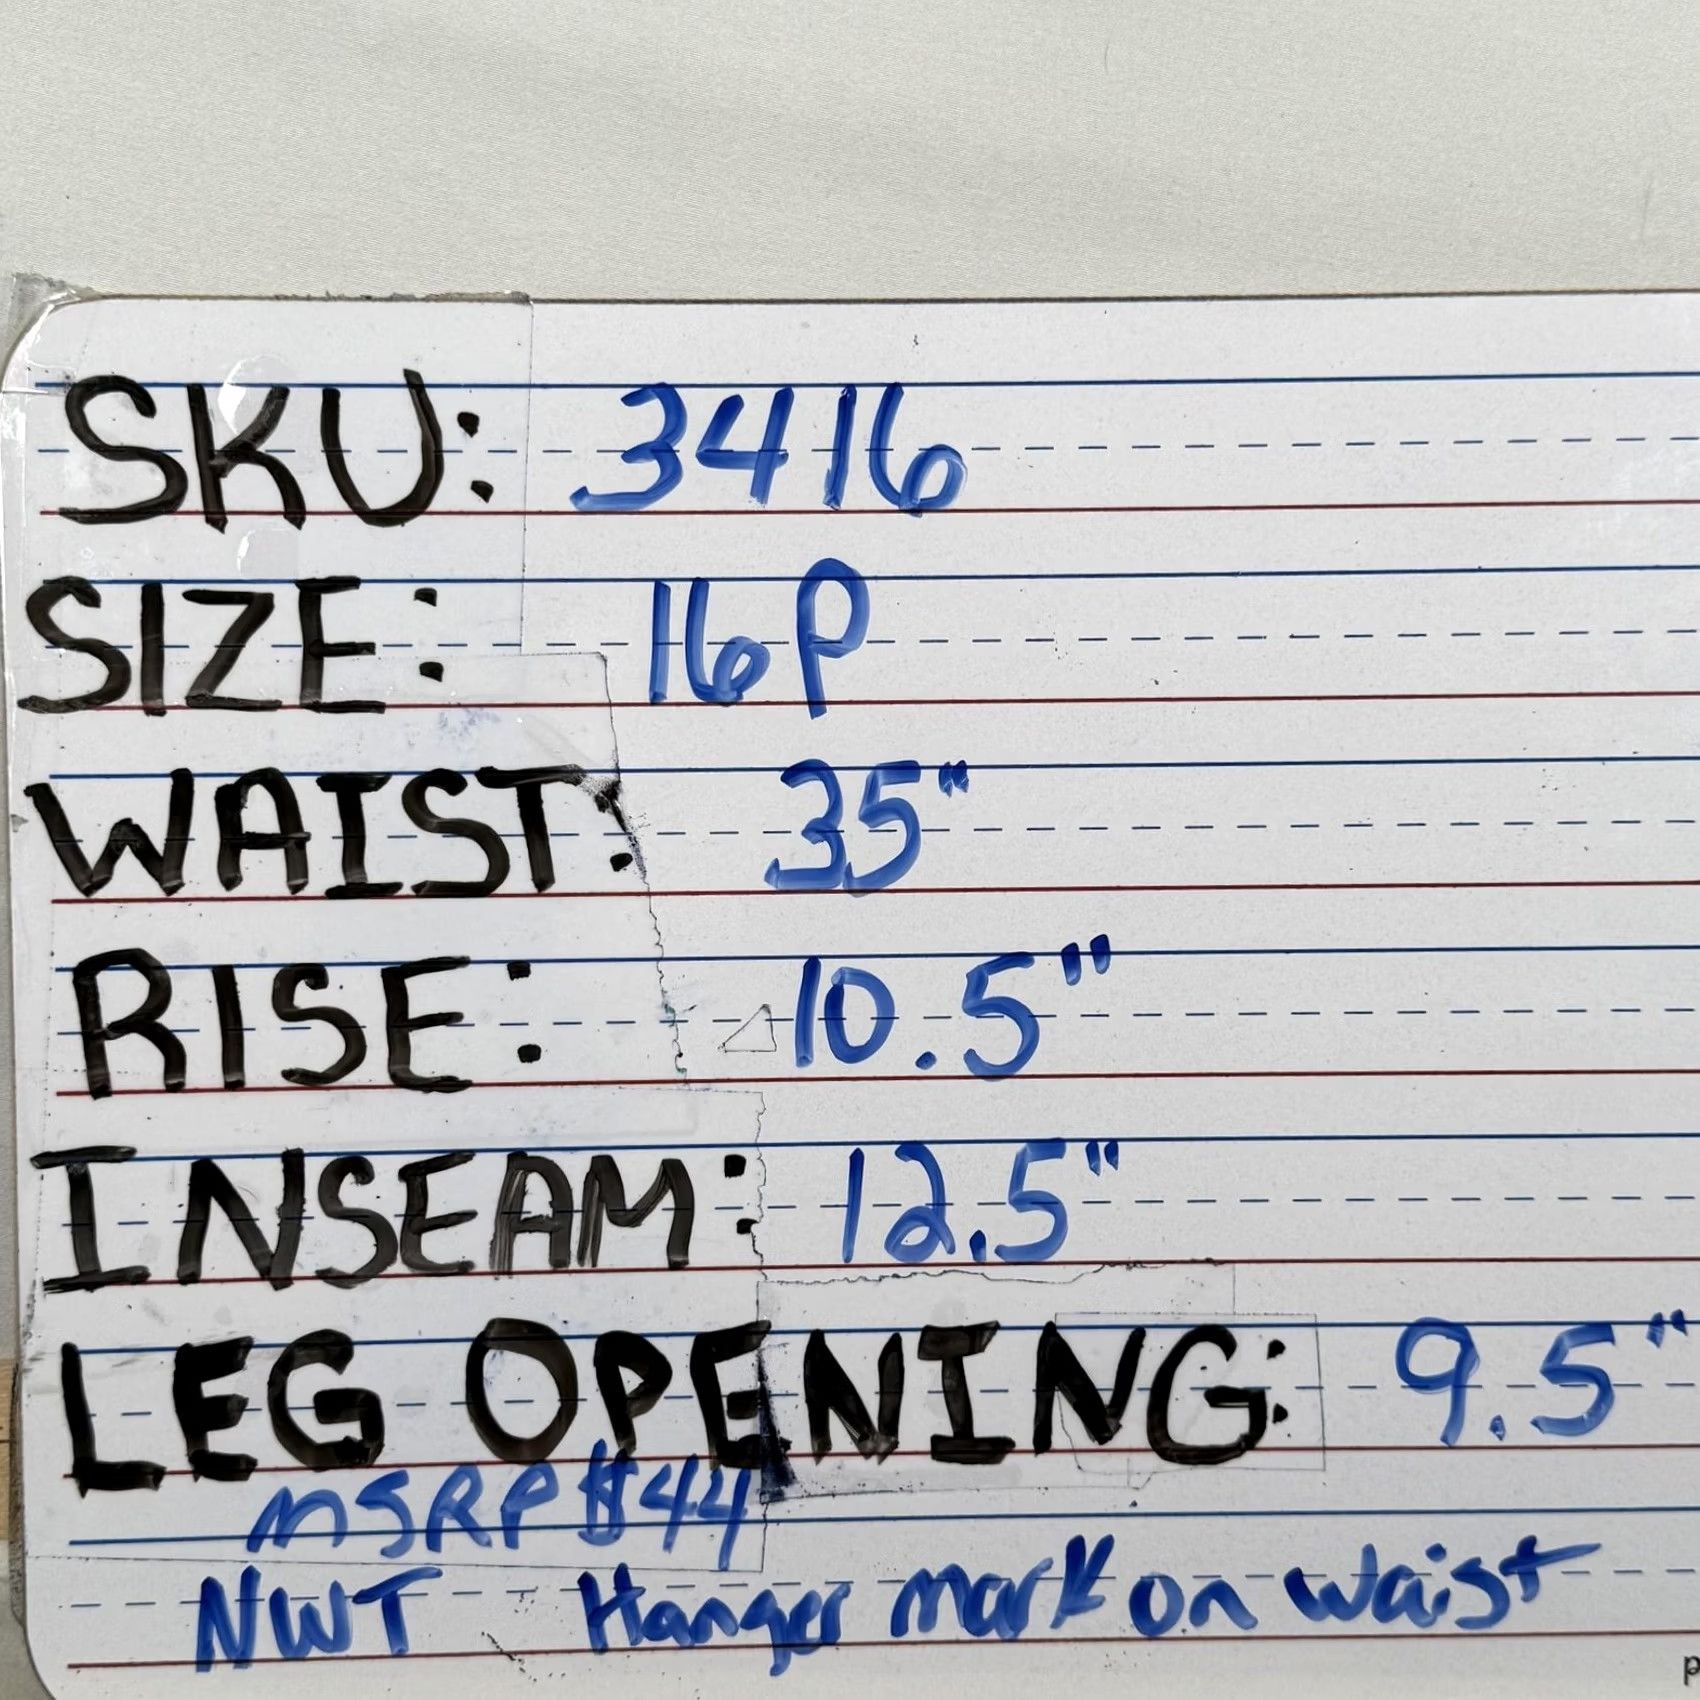 SKU: 3416
SIZE: 16P
WAIST: 35"
RISE: 10.5"
INSEAM: 12.5"
LEG OPENING: 9.5"
MSRP $44
NWT Hanger mark on waist